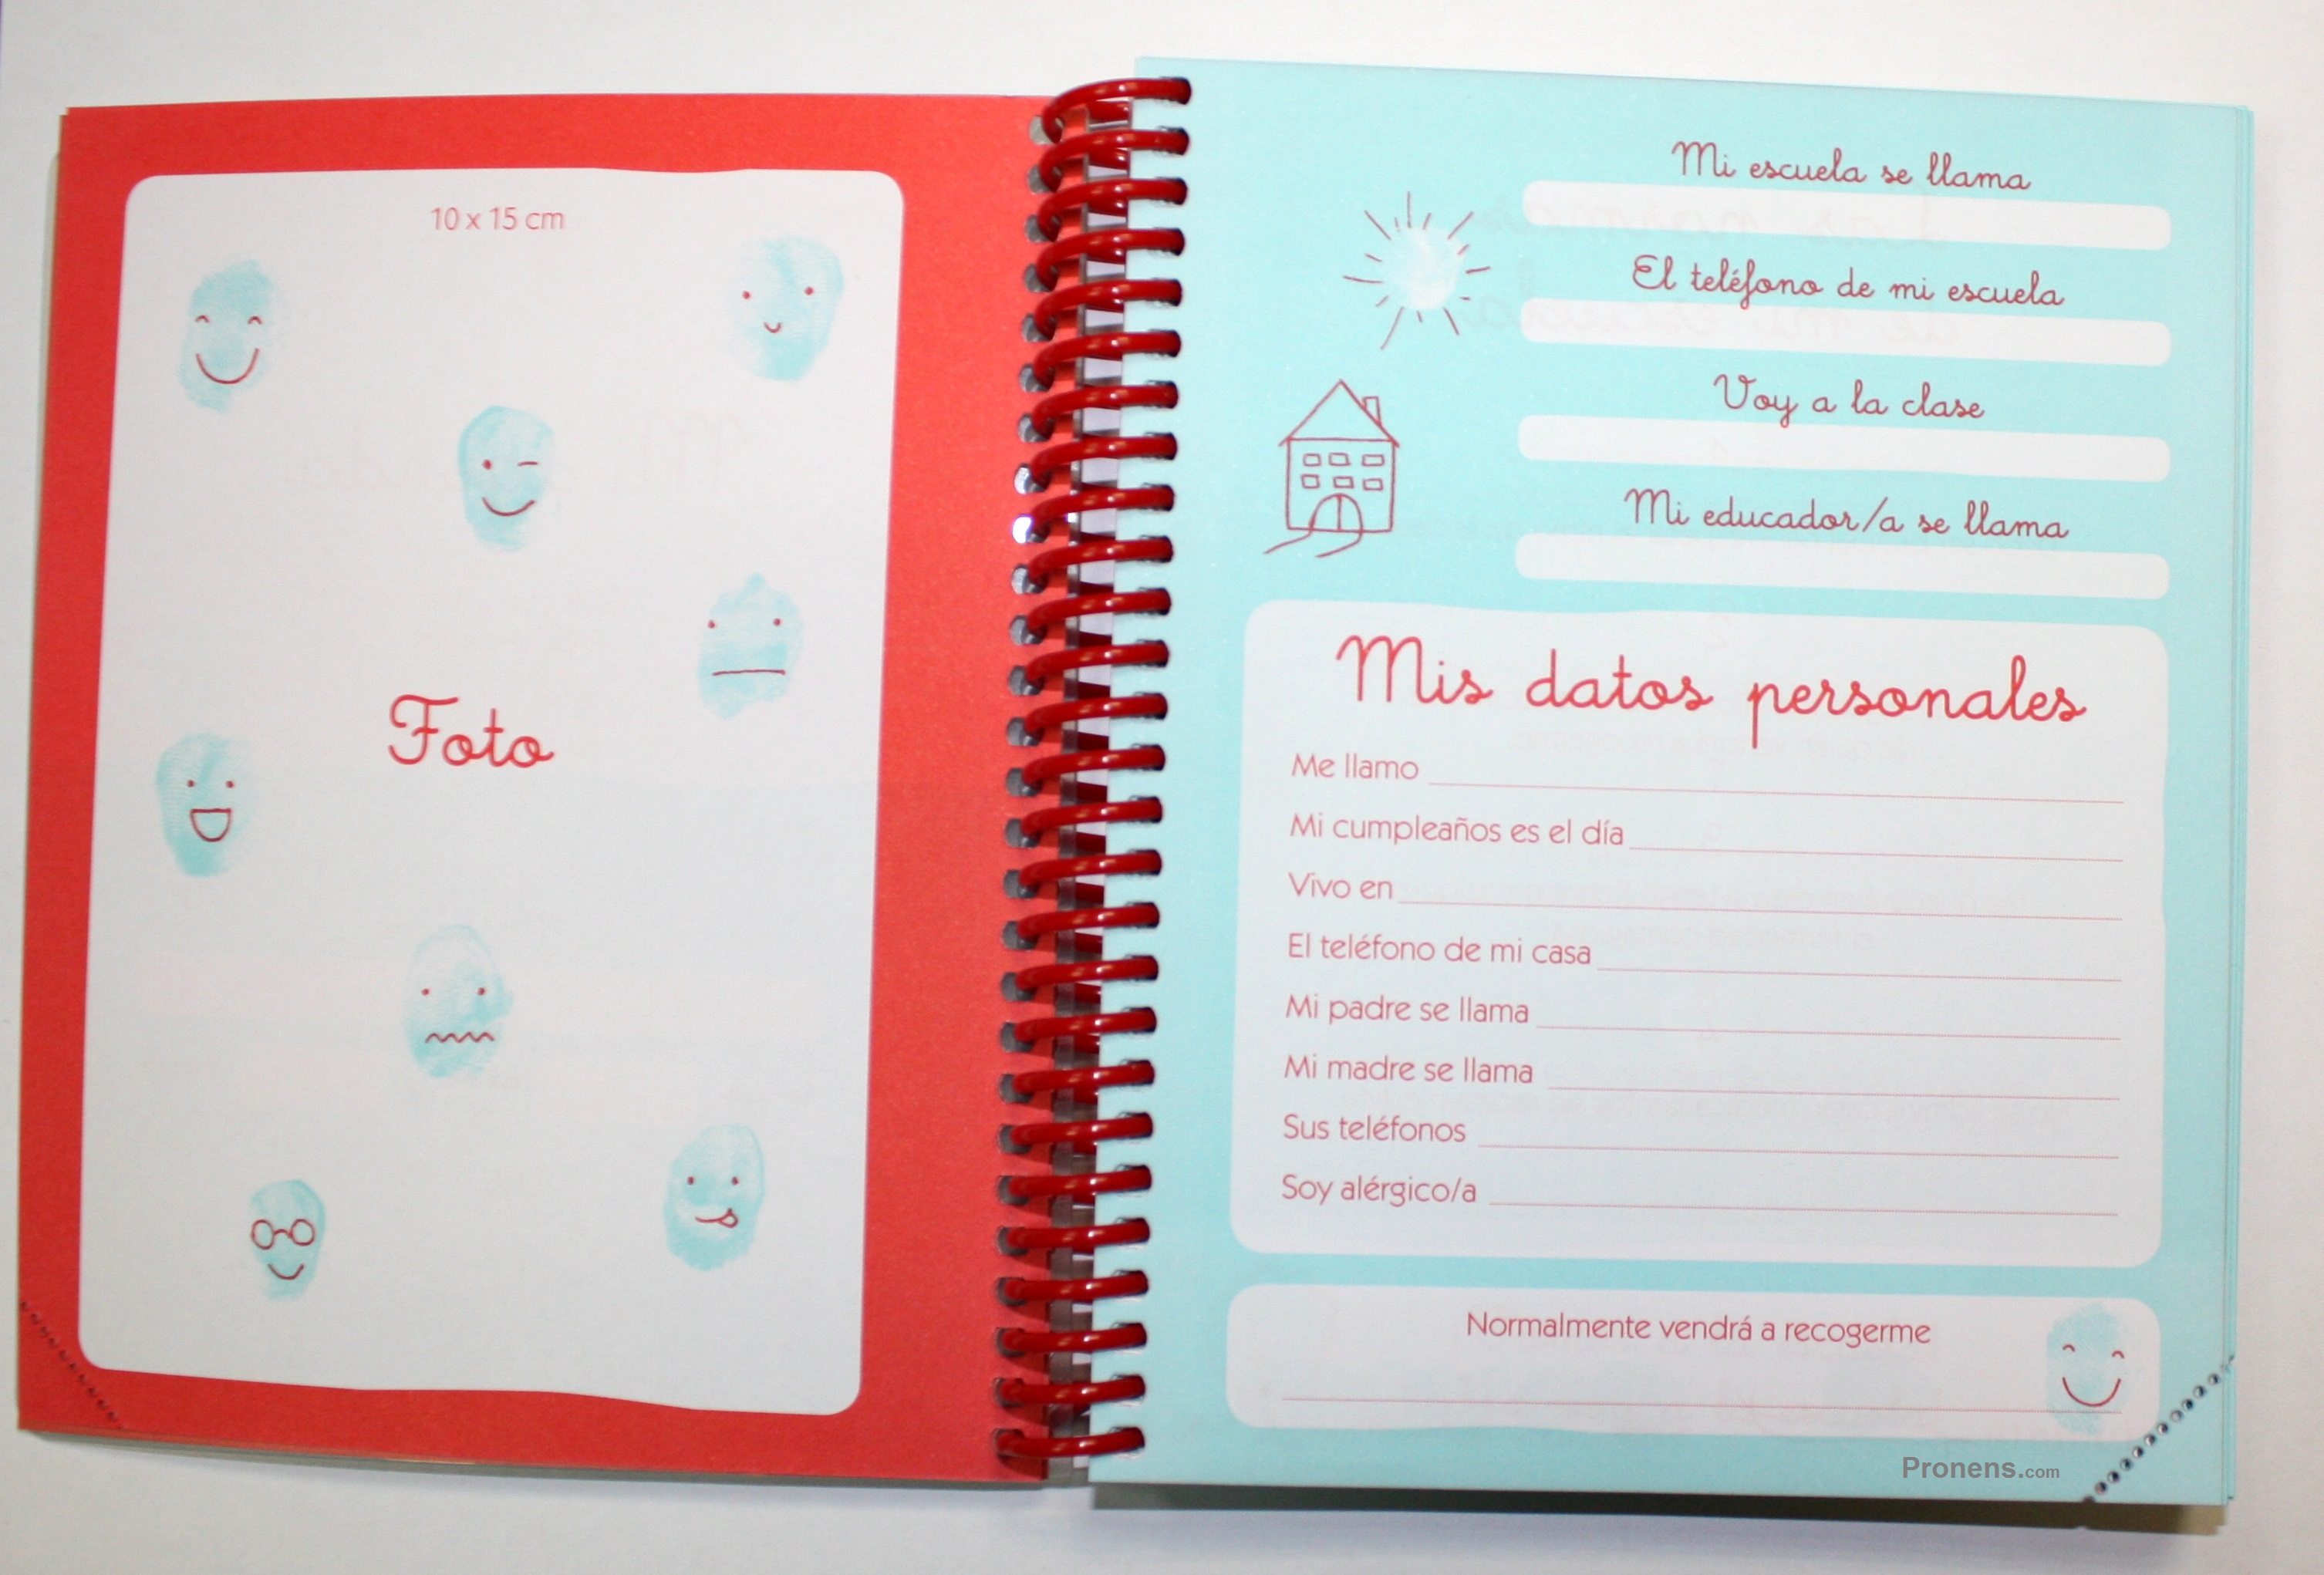 10 x 15 cm
Foto
Mi escuela se llama
El teléfono de mi escuela
Voy a la clase
Mi educador/a se llama
Mis datos personales
Me llamo
Mi cumpleaños es el día
Vivo en
El teléfono de mi casa
Mi padre se llama
Mi madre se llama
Sus teléfonos
Soy alérgico/a
Normalmente vendrá a recogerme
Pronens.com